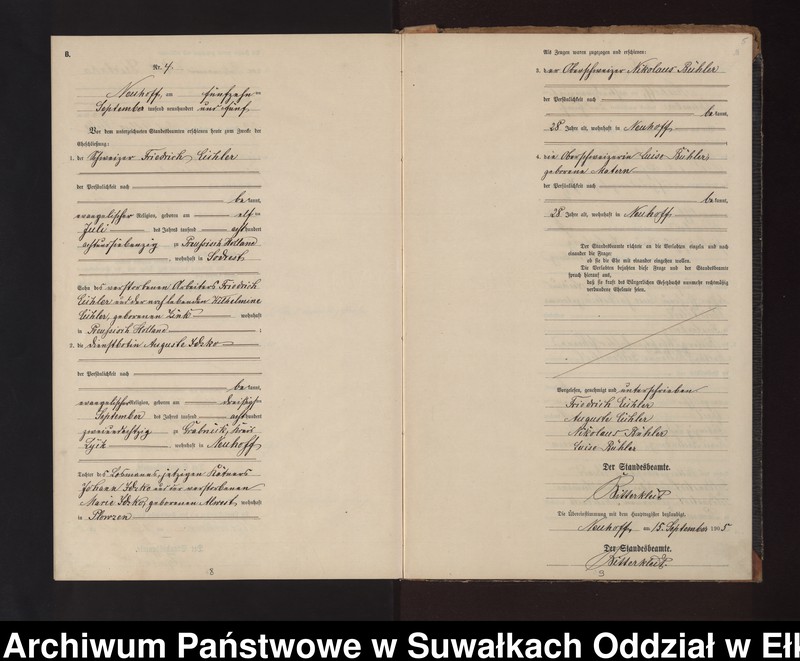 8.
Nr. 4.
Neuhoff, am fünfzehnten
September tausend neunhundert und fünf
Vor dem unterzeichneten Standesbeamten erschienen heute zum Zwecke der
Eheschließung:
1. der Schweizer Friedrich Eichler
der Persönlichkeit nach
be kannt,
evangelischer Religion, geboren am elften
Juli des Jahres tausend achthundert
achtundsiebenzig zu Preußisch Holland
, wohnhaft in
Sohn des verstorbenen Arbeiters Friedrich
Eichler und der noch lebenden Wilhelmine
Eichler, geborenen Zink wohnhaft
in Preußisch Holland ;
2. die Dienstbotin Auguste
der Persönlichkeit nach
be kannt,
evangelischer Religion, geboren am dreißigsten
September des Jahres tausend achthundert
zweiundachtzig zu Grabnick, Kreis
Lyck , wohnhaft in Neuhoff
Tochter des Losmannes, jetzigen Kätners
Johann und der verstorbenen
Marie geborenen wohnhaft
in Plowzen
8
Als Zeugen waren zugezogen und erschienen:
3. der Oberschweizer Nikolaus Bühler
der Persönlichkeit nach
be kannt,
28 Jahre alt, wohnhaft in Neuhoff
4. die Oberschweizerin Luise Bühler,
geborene Matern
der Persönlichkeit nach
be kannt,
28 Jahre alt, wohnhaft in Neuhoff
Der Standesbeamte richtete an die Verlobten einzeln und nach
einander die Frage:
ob sie die Ehe mit einander eingehen wollen.
Die Verlobten bejahten diese Frage und der Standesbeamte
sprach hierauf aus,
daß sie kraft des Bürgerlichen Gesetzbuchs nunmehr rechtmäßig
verbundene Eheleute seien.
Vorgelesen, genehmigt und unterschrieben
Friedrich Eichler
Auguste Eichler
Nikolaus Bühler
Luise Bühler
Der Standesbeamte.
Ritterkleid
Die Übereinstimmung mit dem Hauptregister beglaubigt.
Neuhoff, am 15. September 1905
Der Standesbeamte.
Ritterkleid
9
Archiwum Państwowe w Suwałkach Oddział w Ełk